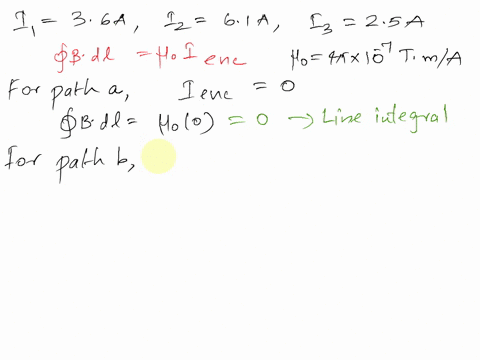 I₁ = 3.6A, I₂ = 6.1A, I₃ = 2.5A
∮B·dl = μ₀ I enc μ₀ = 4π×10⁻⁷ T·m/A
For path a, I enc = 0
∮B·dl = μ₀(0) = 0 → Line integral
For path b,